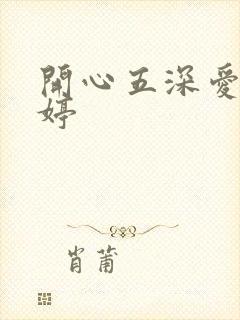 開心五深愛
婷
肖莆